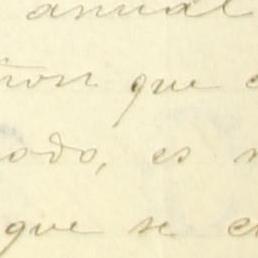 anual
ñon que
odo, es
que se